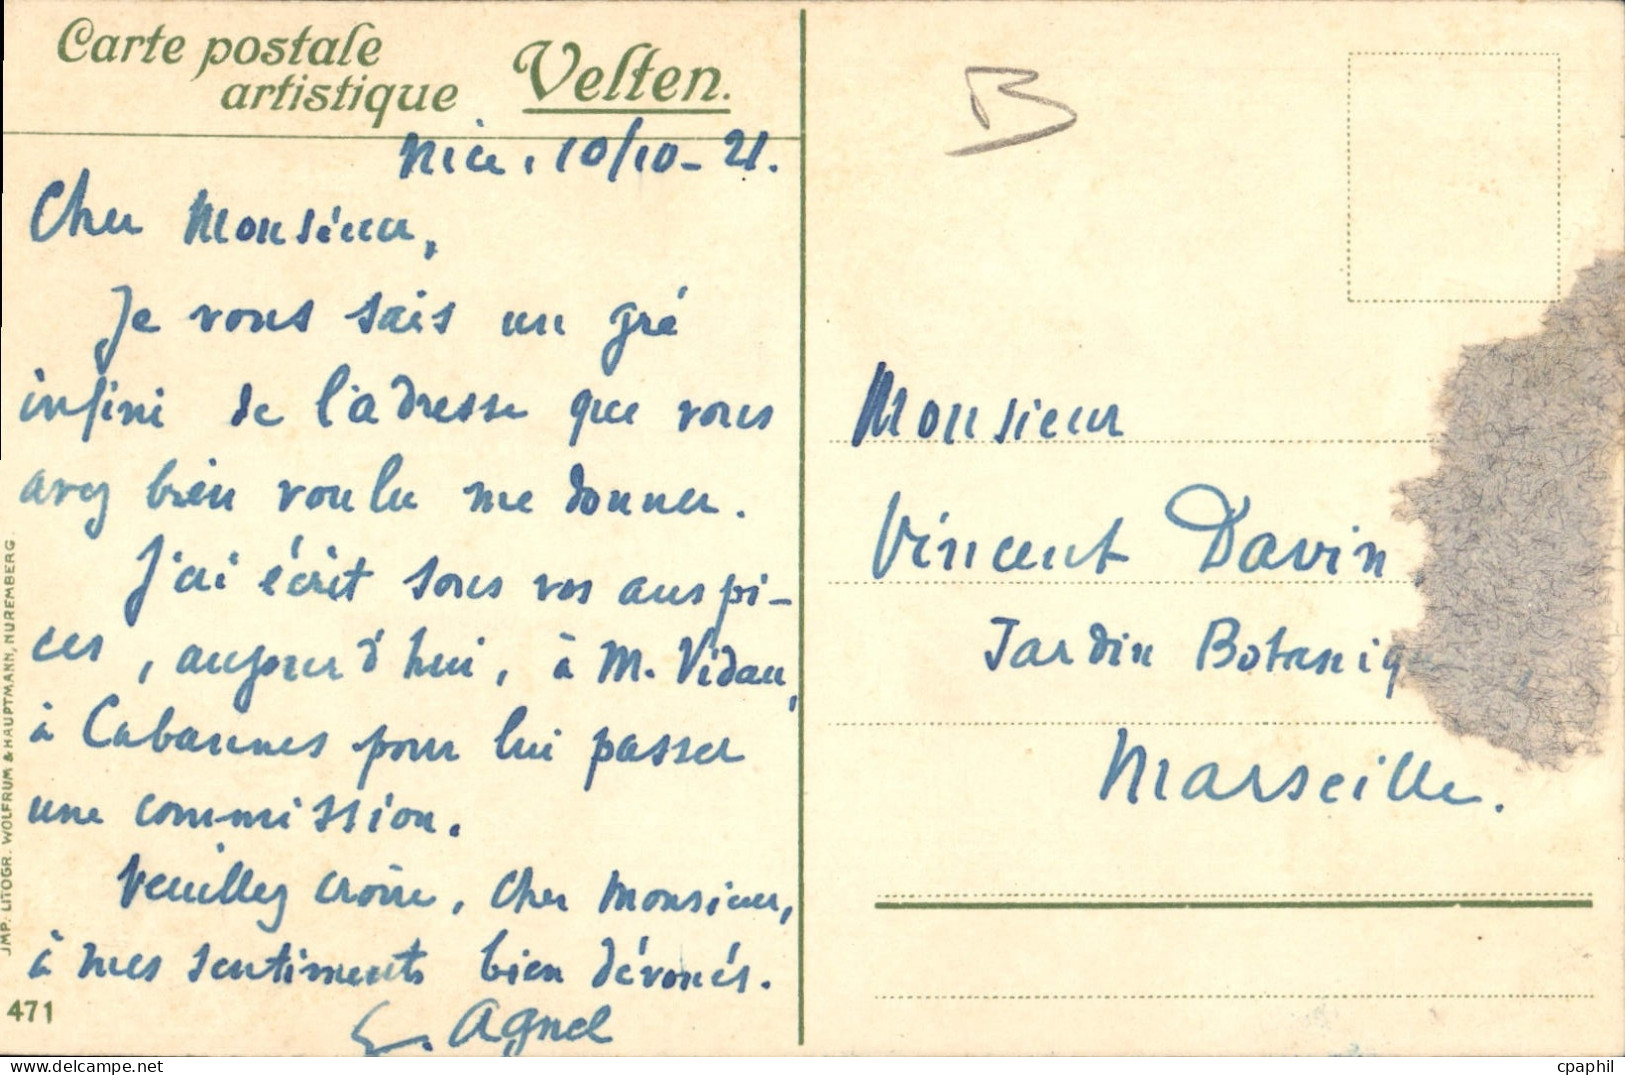 Carte postale
artistique Velten.
Nice, 10/10-21.
Cher Monsieur,
Je vous sais un gré
infini de l'adresse que vous
avez bien voulu me donner.
J'ai écrit sous vos auspi-
ces, aujourd'hui, à M. Vidau,
à Cabannes pour lui passer
une commission.
Veuillez croire, Cher Monsieur,
à mes sentiments bien dévoués.
E. Agnel
471
JMP. LITOGR. WOLFRUM & HAUPTMANN, NUREMBERG.
B
Monsieur
Vincent Davin
Jardin Botaniqu
Marseille.
cpaphil
www.delcampe.net